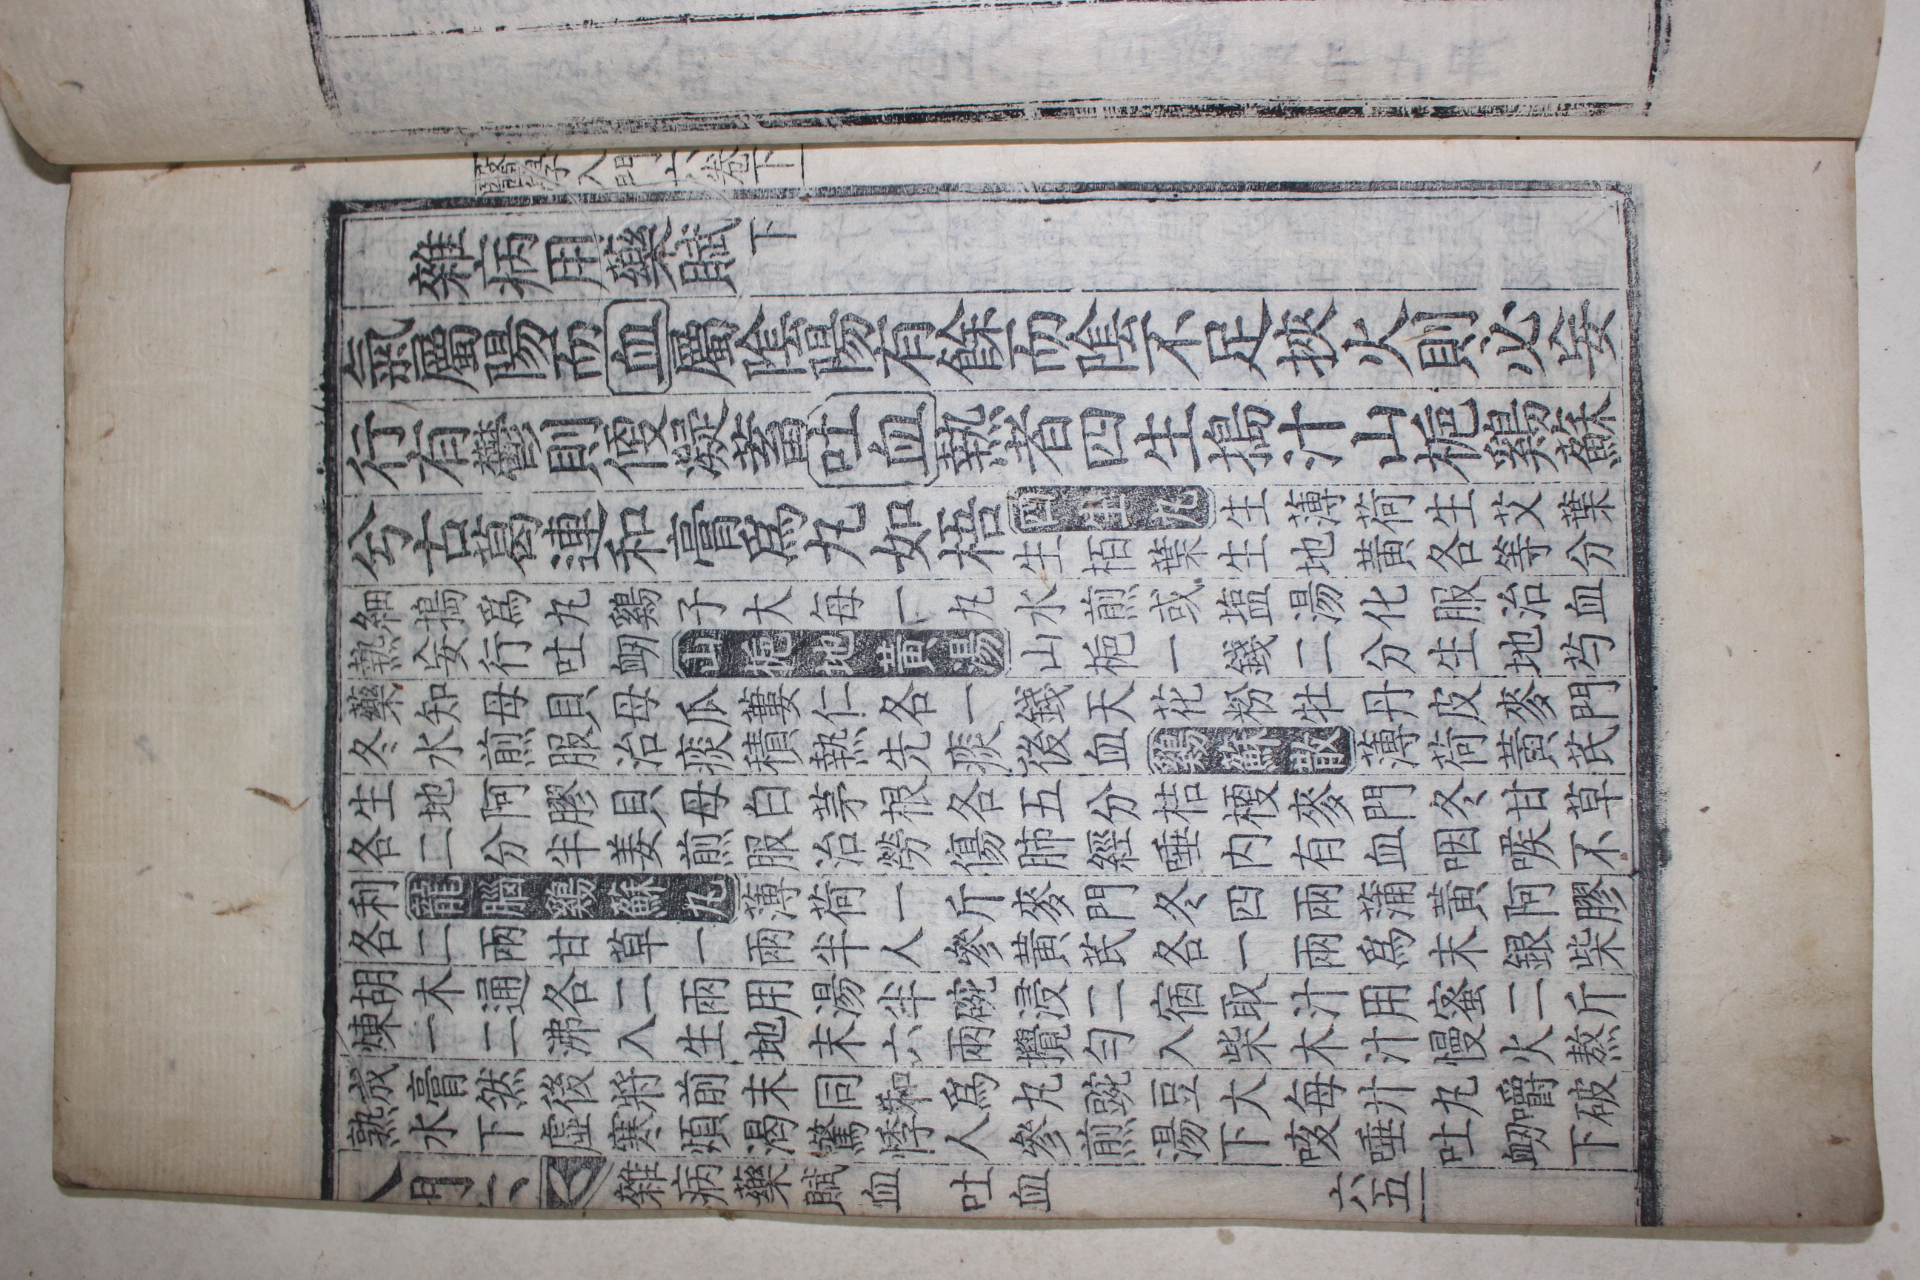 醫學入門六卷下
雜病用藥賦下
氣屬陽而血屬陰陽有餘而陰不足挾火則必妄
行有鬱則便凝蓄吐血熱者四生搗汁山梔鷄蘇
兮古葛連和膏爲九如梧
四生九生薄荷生艾葉
生栢葉生地黃各等分
細搗爲丸鷄子大每一丸水煎或塩湯化服治血
熱妄行吐衂山梔地黃湯山梔一錢二分生地芍
藥知母貝母瓜蔞仁各一錢天花粉牡丹皮麥門
冬水煎服治痰積熱先痰後血鷄蘇散薄荷黃芪
生地阿膠貝母白茅根各五分桔梗麥門冬甘草
各二分半姜煎服治勞傷肺經唾內有血咽喉不
利龍腦鷄蘇丸薄荷一斤麥門冬四兩蒲黃阿膠
各二兩甘草一兩半人參黃芪各一兩爲末銀柴
胡木通各二兩用湯半碗浸二宿取汁用蜜二斤
煉一二沸入生地末六兩攪勻入柴木汁慢火熬
成膏然後將前末同和爲丸豌豆大每廾丸嚼破
熟水下虛寒煩渴驚悸人參煎湯下咳唾吐衂下
入門六 雜病藥賦血 吐血 六五